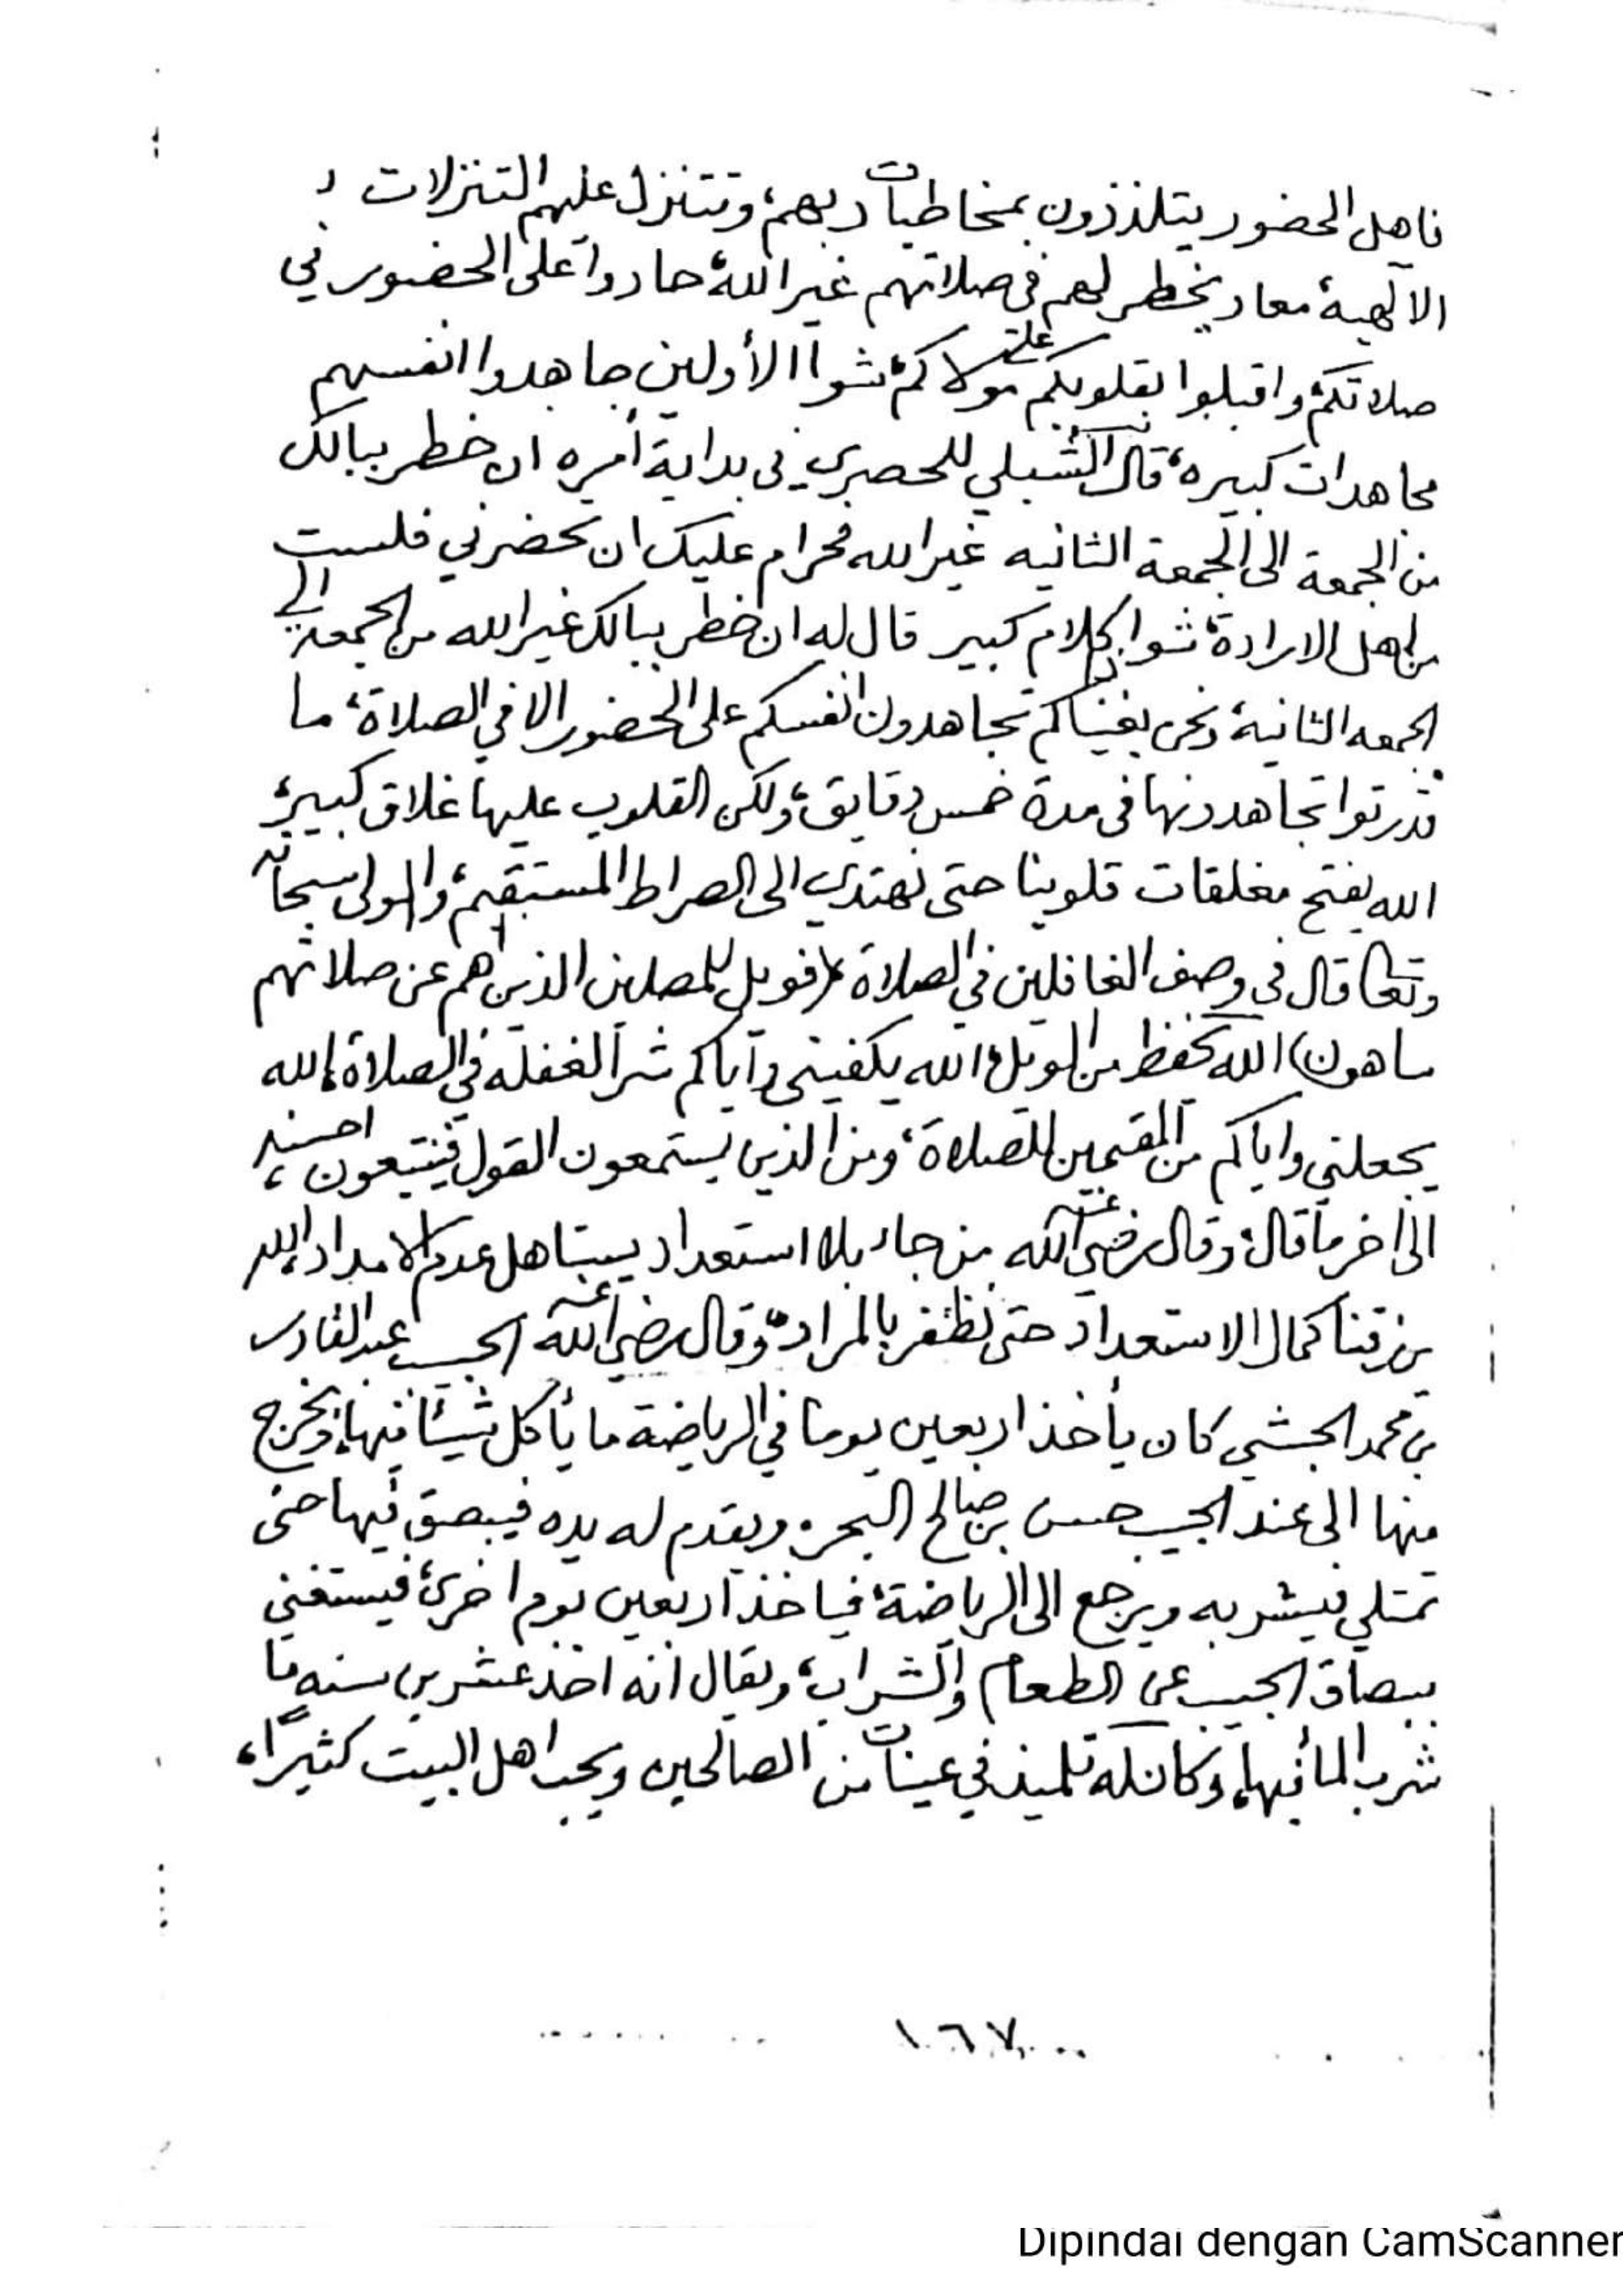 فاهل الحضور يتلذذون بمخاطبات ربهم، وتتنزل عليهم التنزلات
الالهية، معاد يخطر لهم في صلاتهم غير الله، حاروا على الحضور في
صلاتكم، واقبلوا بقلوبكم على مولاكم، شوا الأولين جاهدوا انفسهم
مجاهدات كبيره، قال الشبلي للحصري في بداية أمره ان خطر ببالك
من الجمعة الى الجمعة الثانيه غير الله فحرام عليك ان تحضرني فلست
من اهل الارادة، شوا كلام كبير قال له ان خطر ببالك غير الله من الجمعه الى
الجمعه الثانية، ونحن بغيناكم تجاهدون انفسكم على الحضور الا في الصلاة، ما
قدرتوا تجاهدونها في مدة خمس دقايق، ولكن القلوب عليها غلاق كبير،
الله يفتح مغلقات قلوبنا حتى نهتدي الى الصراط المستقيم، والمولى سبحانه
وتعالى قال في وصف الغافلين في الصلاة (فويل للمصلين الذين هم عن صلاتهم
ساهون) الله يحفظ من الويل، الله يكفيني واياكم شر الغفله في الصلاة، الله
يجعلني واياكم من المقيمين للصلاة، ومن الذين يستمعون القول فيتبعون احسنه،
الى اخر ما قال، وقال رضي الله عنه من جاء بلا استعداد يستاهل عدم الامداد، الله
يرزقنا كمال الاستعداد حتى نظفر بالمراد، وقال رضي الله عنه الحبيب عبدالقادر
بن محمد الحبشي كان يأخذ اربعين يوما في الرياضة ما يأكل شيئا فيها، ويخرج
منها الى عند الحبيب حسن بن صالح البحر، ويقدم له يده فيبصق فيها حتى
تمتلي فيشربه ويرجع الى الرياضة، فياخذ اربعين يوم اخرى، فيستغني
ببصاق الحبيب عن الطعام والشراب، ويقال انه اخذ عشرين سنه ما
شرب الما فيها، وكان له تلميذ في عينات من الصالحين ويحب اهل البيت كثيرًا،
١٦٧
Dipindai dengan CamScanner